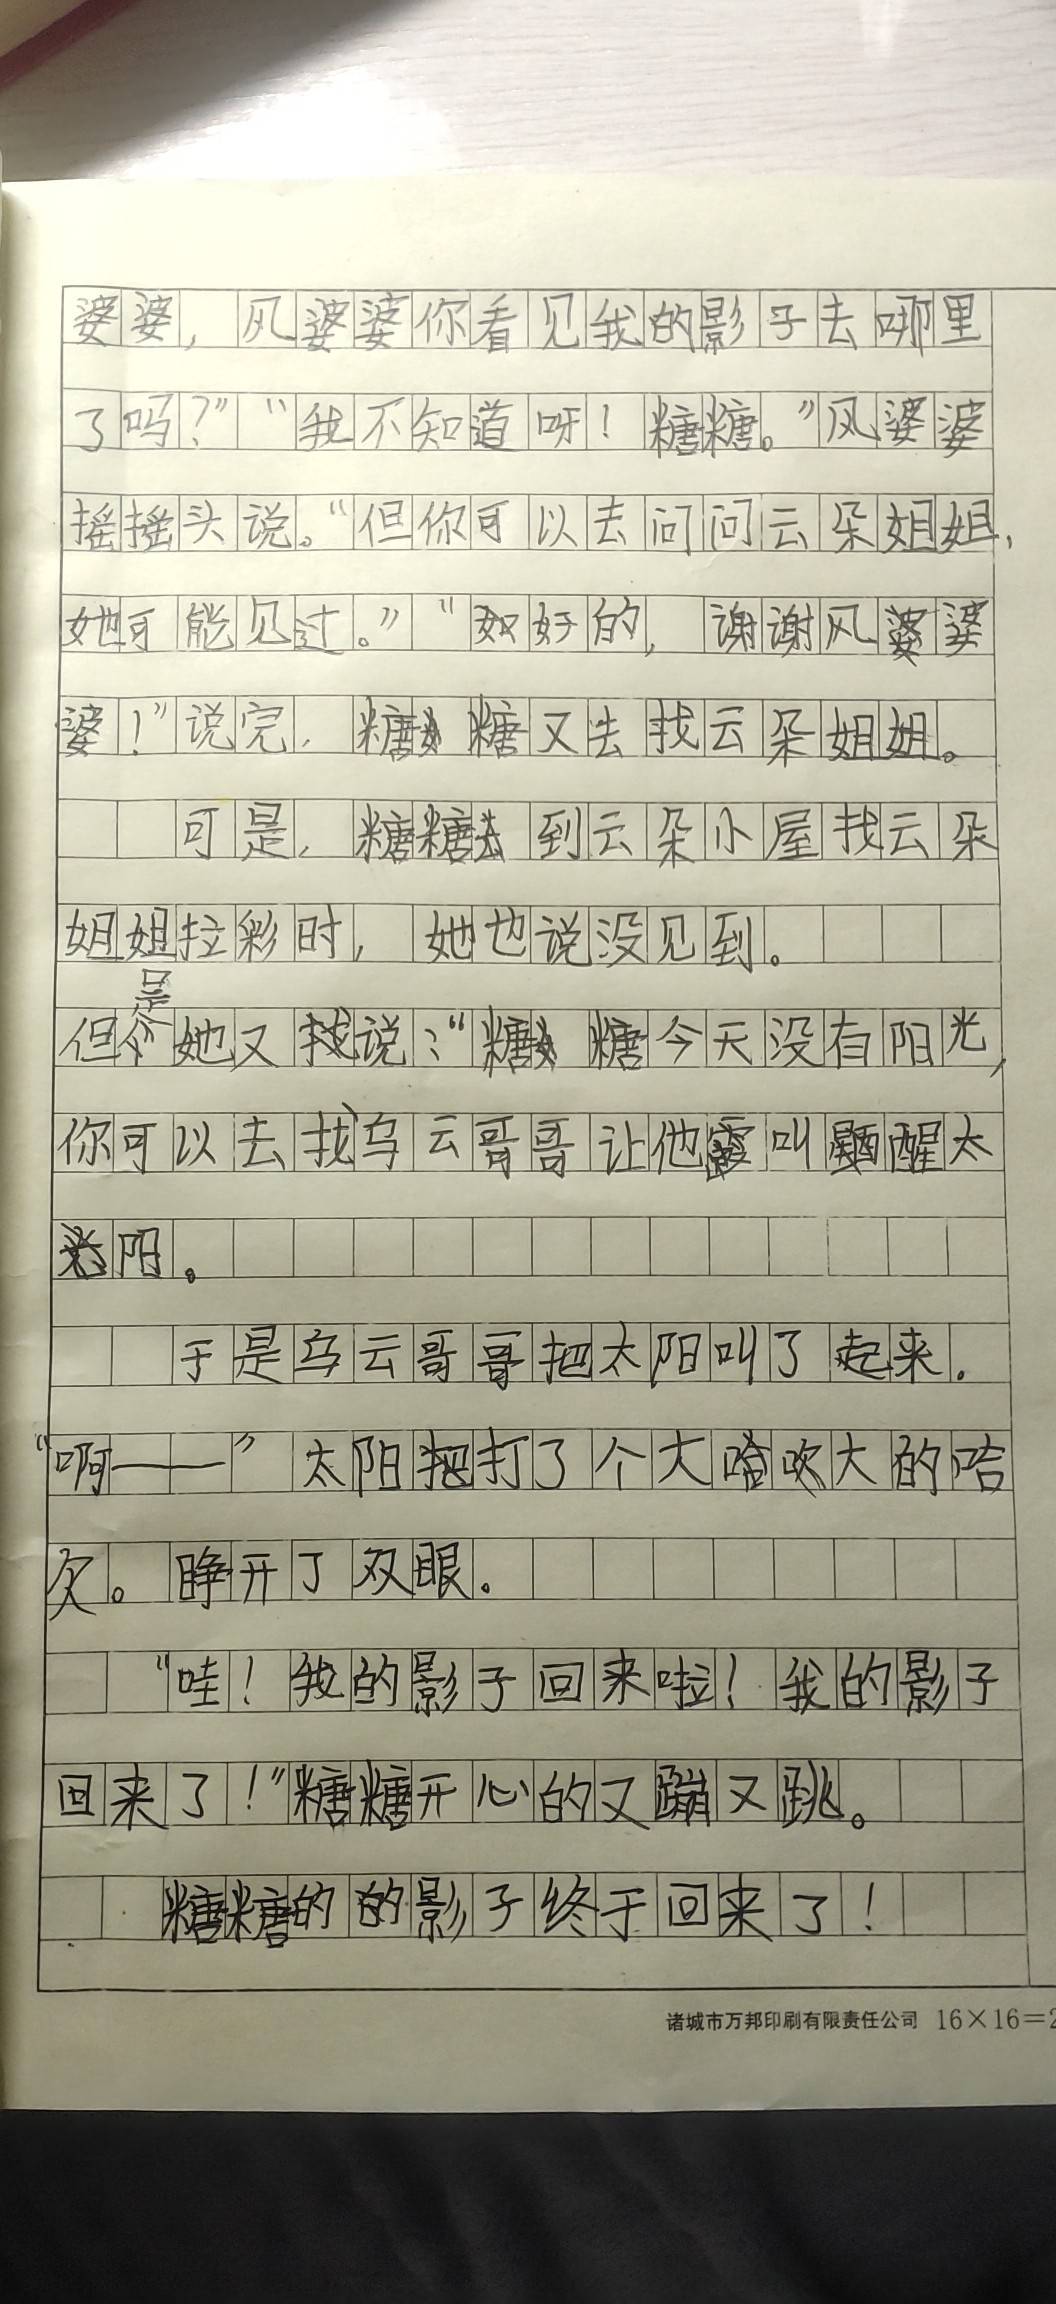 婆婆，风婆婆你看见我的影子去哪里
了吗？”“我不知道呀！糖糖。”风婆婆
摇摇头说。“但你可以去问问云朵姐姐，
她可能见过。”“好的，谢谢风婆婆
婆！”说完，糖糖又去找云朵姐姐。
可是，糖糖到云朵小屋找云朵
姐姐拉彩时，她也说没见到。
但是她又说：“糖糖今天没有阳光，
你可以去找乌云哥哥让他叫醒太
阳。
于是乌云哥哥把太阳叫了起来。
“啊——”太阳打了个大大的哈
欠。睁开了双眼。
“哇！我的影子回来啦！我的影子
回来了！”糖糖开心的又蹦又跳。
糖糖的的影子终于回来了！
诸城市万邦印刷有限责任公司 16×16=2